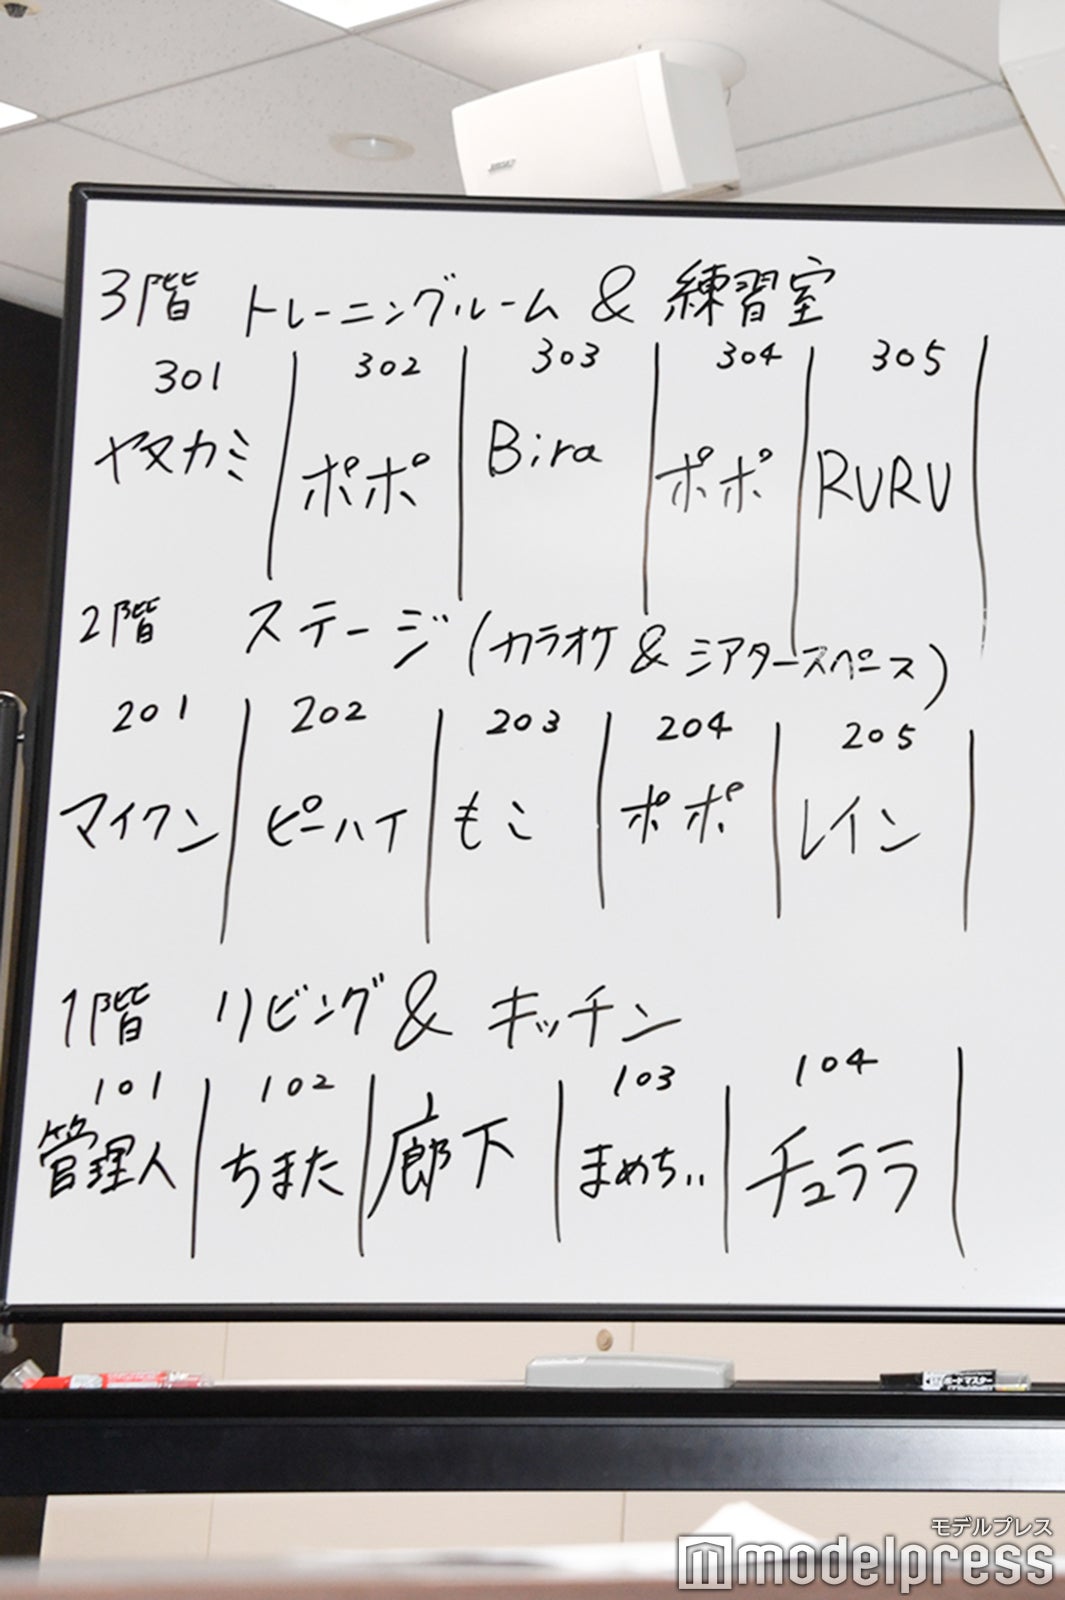 3階 トレーニングルーム & 練習室
301 302 303 304 305
ヤヌカミ ポポ Bira ポポ RURU
2階 ステージ (カラオケ & シアタースペース)
201 202 203 204 205
マイクン ピーハイ もこ ポポ レイン
1階 リビング & キッチン
101 102 103 104
管理人 ちまた 廊下 まめちぃ チュララ
ボードマスター
モデルプレス
modelpress